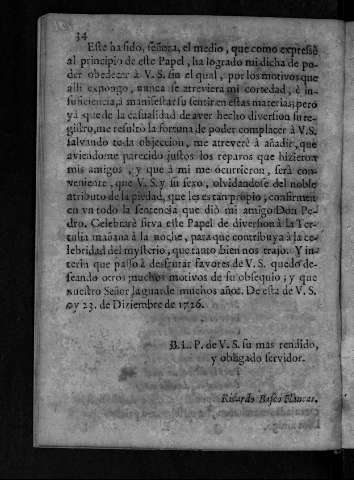 34
Este ha sido, señora, el medio, que como expressè
al principio de este Papel, ha logrado mi dicha de po-
der obedecer à V. S. sin el qual, por los motivos que
alli expongo, nunca se atreviera mi cortedad, è in-
suficiencia, à manifestar su sentir en estas materias; pero
yà que de la casualidad de aver hecho diversion su re-
gistro, me resultò la fortuna de poder complacer à V. S.
salvando toda objeccion, me atreverè à añadir, que
aviendome parecido justos los reparos que hizieron
mis amigos, y que à mi me ocurrieron, serà con-
veniente, que V. S. y su sexo, olvidandose del noble
atributo de la piedad, que les es tan propio, confirmen
en vn todo la sentencia que diò mi amigo Don Pe-
dro. Celebrarè sirva este Papel de diversion à la Ter-
tulia mañana à la noche, para que contribuya à la ce-
lebridad del mysterio, que tanto bien nos trajo. Y in-
terin que passo à desfrutar favores de V. S. quedo de-
seando otros muchos motivos de su obsequio; y que
nuestro Señor la guarde muchos años. De esta de V. S.
oy 23. de Diziembre de 1726.
B. L. P. de V. S. su mas rendido,
y obligado servidor.
Ricardo Basco Flancas.